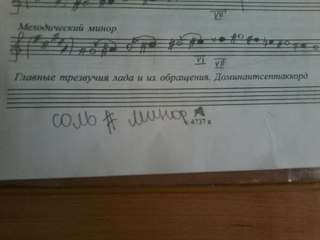 VII
Мелодический минор
VI VII
Главные трезвучия лада и их обращения. Доминантсептаккорд
соль # минор
4737 к